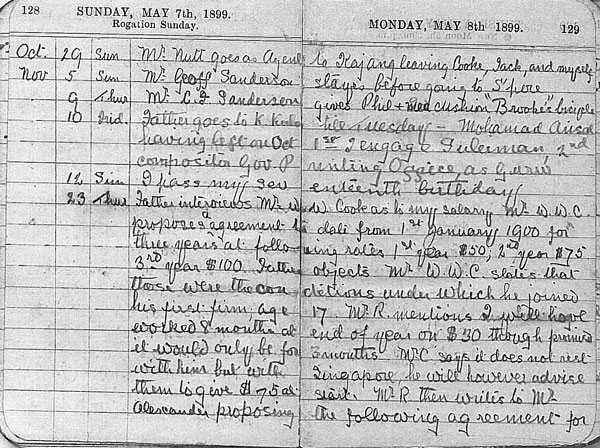 128 SUNDAY, MAY 7th, 1899. MONDAY, MAY 8th 1899. 129
Rogation Sunday.
Oct. 29 Sun Mr. Nutt goes as Agent to Kajang leaving Cooke, Jack, and myself
Nov 5 Sun Mr. Geoff Sanderson stayes before going to S'pore
9 Thur Mr. C. F Sanderson gives Phil + Ned cushion "Brookes" bicycle
10 Frid. Father goes to K. Kubu till Tuesday – Mohamad
having left on Oct 1st I engage Suleiman, 2nd
compositor Gov. P rinting Offiice, as Guru
12 Sun I pass my sev enteenth birthday
23 Thur Father interviews Mr. W W. Cook as to my salary Mr. W.W.C.
proposes a agreement to date from 1st January 1900 for
three years at follo wing rates 1st year $50, 2nd year $75
3rd year $100. Father objects. Mr. W.W.C states that
those were the con ditions under which he joined
his first firm, age 17. Mr. R. mentions I will have
worked 8 months at end of year on $30 though promised
it would only be for 3 months. Mr. C says it does not rest
with him but with Singapore, he will however advise
them to give $75 at start. Mr. R then writes to Mr.
Alexander proposing the following agreement for